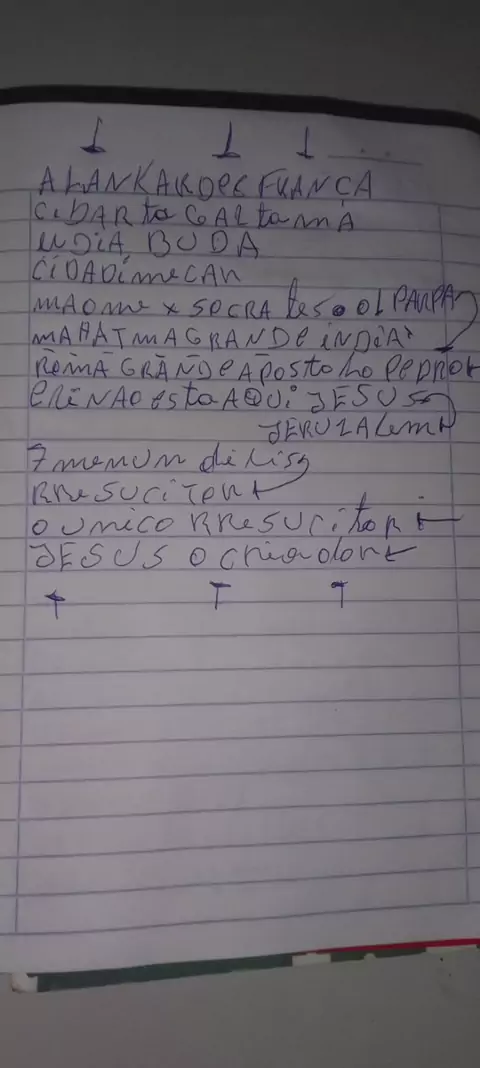 ALANKARDEC FRANÇA
CIDARta GALtamA
iNDiA BUDA
CiDADimeCAN
MAOme x SOCRAtes
MAHATMAGRANDE iNDiA
ROMA GRANDE APOStoLo PeDRo
ELE NAO estA AQUi JESUS
JERUZALem
RReSUCiTOR
O UNiCO RReSUCitor
JESUS O CriAdor